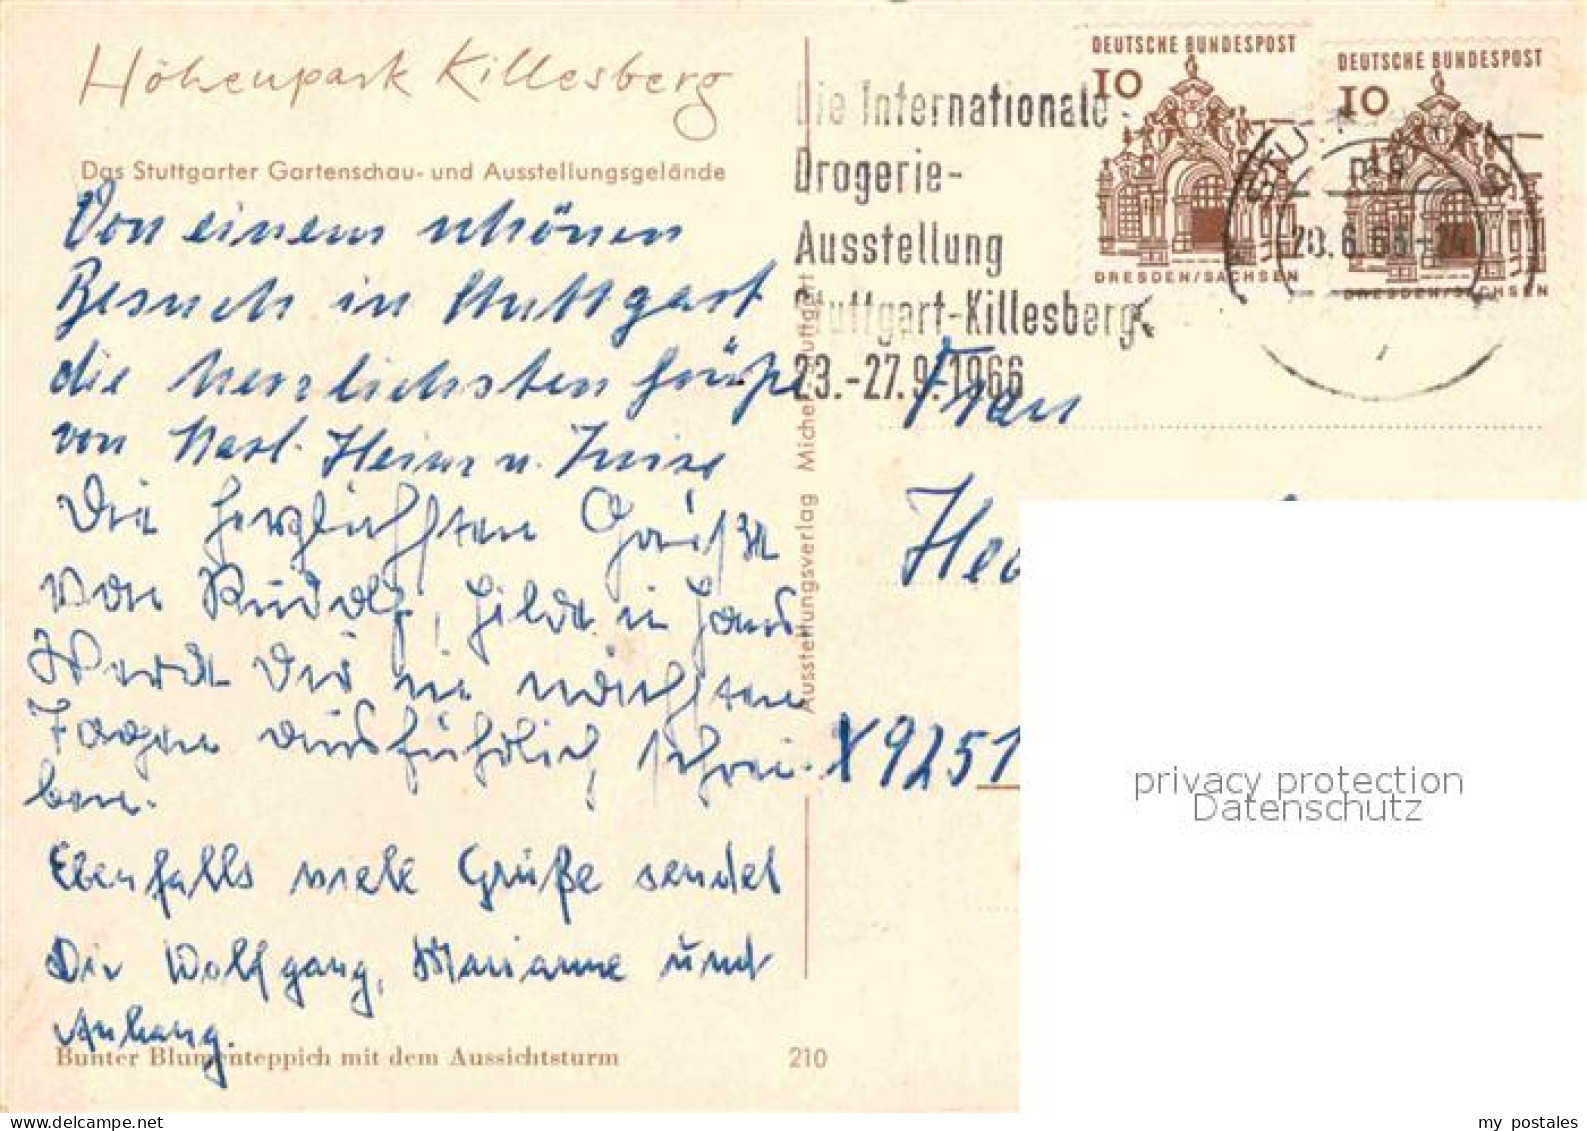 Höhenpark Killesberg
Das Stuttgarter Gartenschau- und Ausstellungsgelände
Von einem schönen
Besuch in Stuttgart
die herzlichsten Grüße
von Karl-Heinz u. Luise
Die herzlichsten Grüße
von Rudolf, Hilde u. Hans
Werde Dir in nächsten
Tagen ausführlich schrei-
ben.
Ebenfalls viele Grüße sendet
Dir Wolfgang, Marianne und
Anhang.
Bunter Blumenteppich mit dem Aussichtsturm
210
Ausstellungsverlag Michel Stuttgart
Die Internationale
Drogerie-
Ausstellung
Stuttgart-Killesberg
23.-27.9.1966
DEUTSCHE BUNDESPOST
10
DRESDEN/SACHSEN
DEUTSCHE BUNDESPOST
10
DRESDEN/SACHSEN
Frau
X9251
privacy protection
Datenschutz
my postales